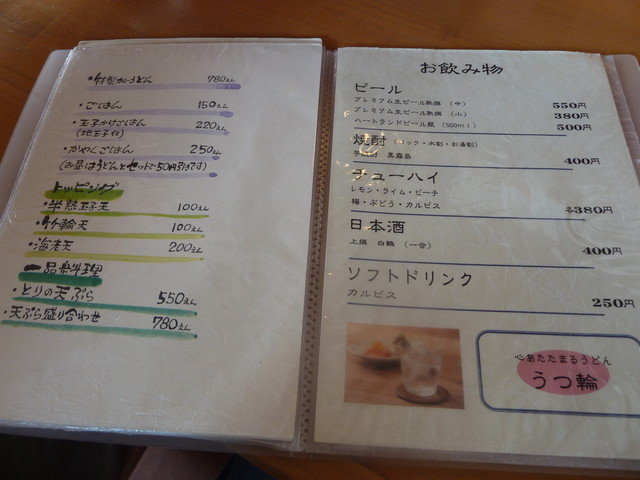 ・特製カレーうどん 780えん
・ごはん 150えん
・玉子かけごはん 220えん
(地玉子付)
・かやくごはん 250えん
(お昼はうどんとセットで50円引です)
トッピング
・半熟玉子天 100えん
・竹輪天 100えん
・海老天 200えん
一品料理
・とりの天ぷら 550えん
・天ぷら盛り合わせ 780えん
お飲み物
ビール
プレミアム生ビール熟撰 (中) 550円
プレミアム生ビール熟撰 (小) 380円
ハートランドビール瓶 (500ml) 500円
焼酎 (ロック・水割・お湯割)
黒霧島 400円
チューハイ
レモン・ライム・ピーチ
梅・ぶどう・カルピス 各380円
日本酒
上撰 白鶴 (一合) 400円
ソフトドリンク
カルピス 250円
心あたたまるうどん
うつ輪